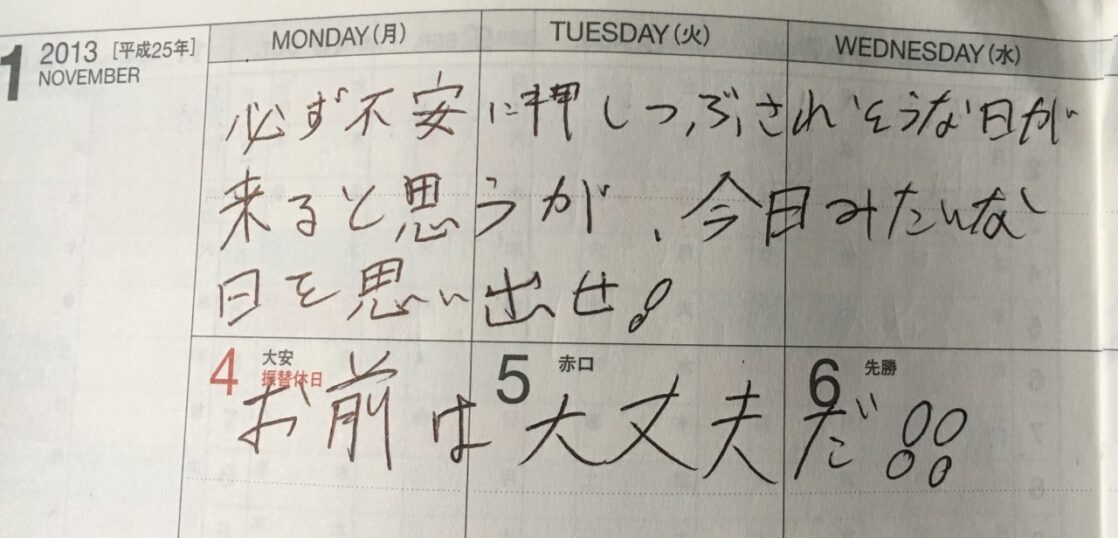 11 2013 [平成25年] NOVEMBER
MONDAY(月) TUESDAY(火) WEDNESDAY(水)
必ず不安に押しつぶされそうな日が
来ると思うが、今日みたいな
日を思い出せ!
4 大安 振替休日
5 赤口
6 先勝
お前は大丈夫だ!!